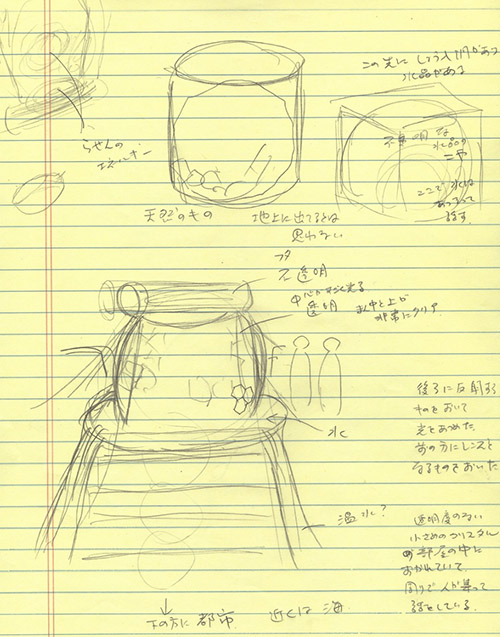 この先に しょう入りがある
水晶がある
らせんの
エネルギー
不透明な
水晶の
ここで
あつまって
話す
天然のもの 地上に出てるとは
思わない
フタ
不透明
中心がすごく光る
透明 まん中と上が
非常にクリア
水
後ろに反射する
ものをおいて
光をあつめた
前の方にレンズと
なるものをおいた
温水?
透明度のない
小さめのクリスタル
の部屋の中に
おかれていて
周りで人が集って
話をしている
下の方に 都市 近くは 海